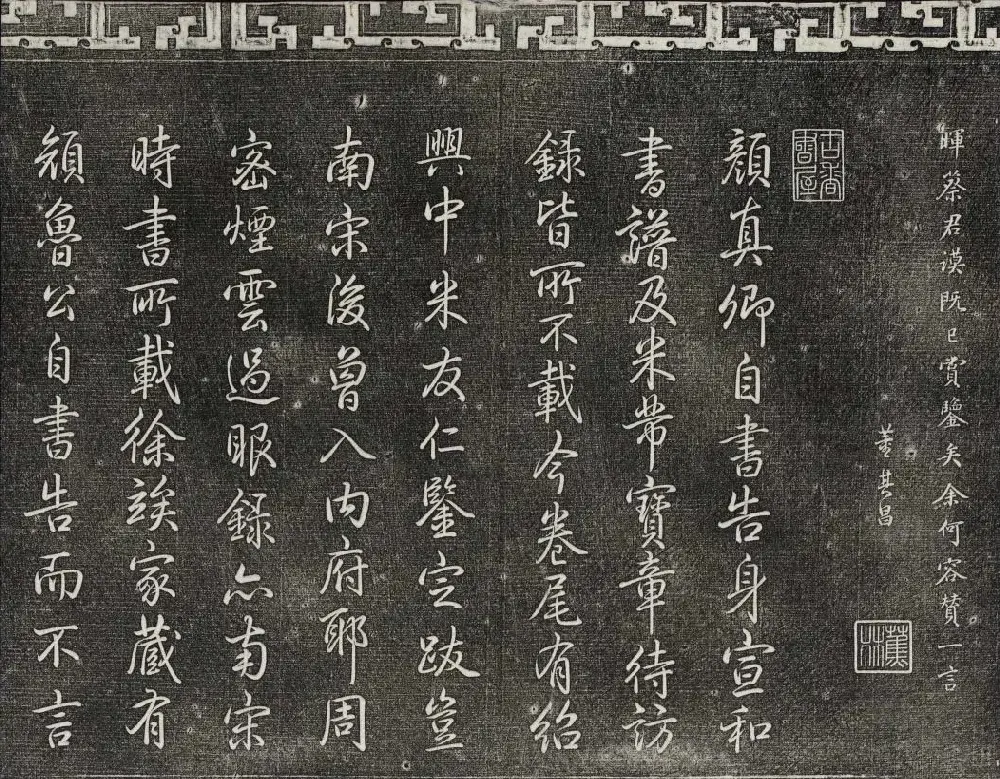 暉蔡君謨既已賞鑒矣余何容賛一言
董其昌
顔真卿自書告身宣和
書譜及米芾寶章待訪
録皆所不載今卷尾有紹
興中米友仁鑒定跋豈
南宋後曾入内府耶周
密煙雲過眼録亦南宋
時書所載徐竢家蔵有
顔魯公自書告而不言